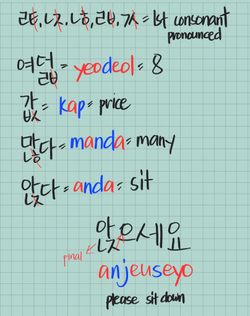 ㄾ, ㄵ, ㄶ, ㄼ, ㄳ = 1st consonant
pronounced
여덟 = yeodeol = 8
값 = kap = price
많다 = manda = many
앉다 = anda = sit
앉으세요
pinal
anjeuseyo
please sit down